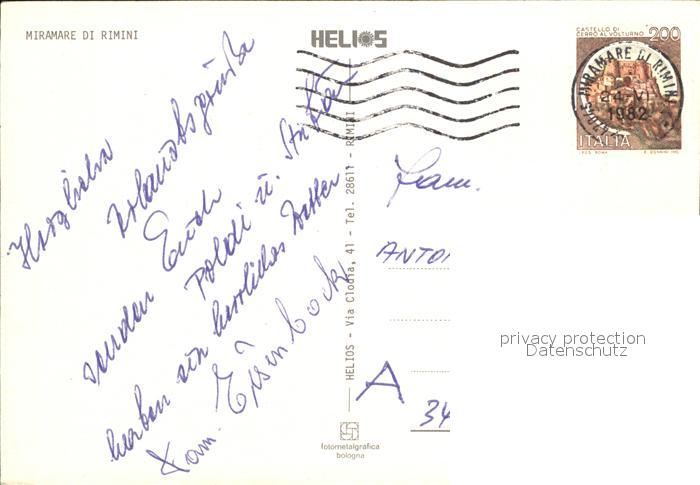 MIRAMARE DI RIMINI
HELIOS
Herzliche
Urlaubsgrüße
senden Euch
Poldi u. Stefan
haben ein herrliches Wetter
Fam. Eisenbock
HELIOS - Via Clodia, 41 - Tel. 28611 - RIMINI
fotometalgrafica
bologna
CASTELLO DI
CERRO AL VOLTURNO 200
MIRAMARE DI RIMINI
1982
ITALIA
Fam.
ANTO
A
34
privacy protection
Datenschutz